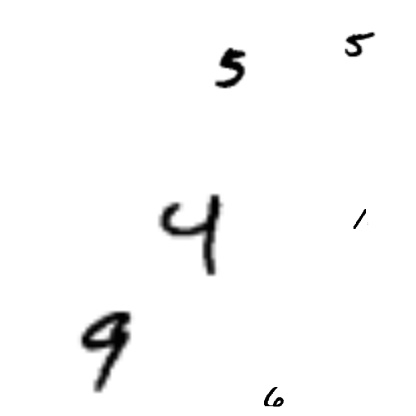 5
5
4
1
9
6